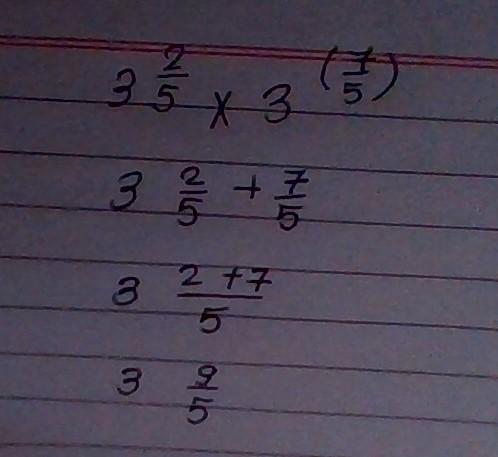 3 2/5 x 3 (7/5)
3 2/5 + 7/5
3 2+7/5
3 9/5